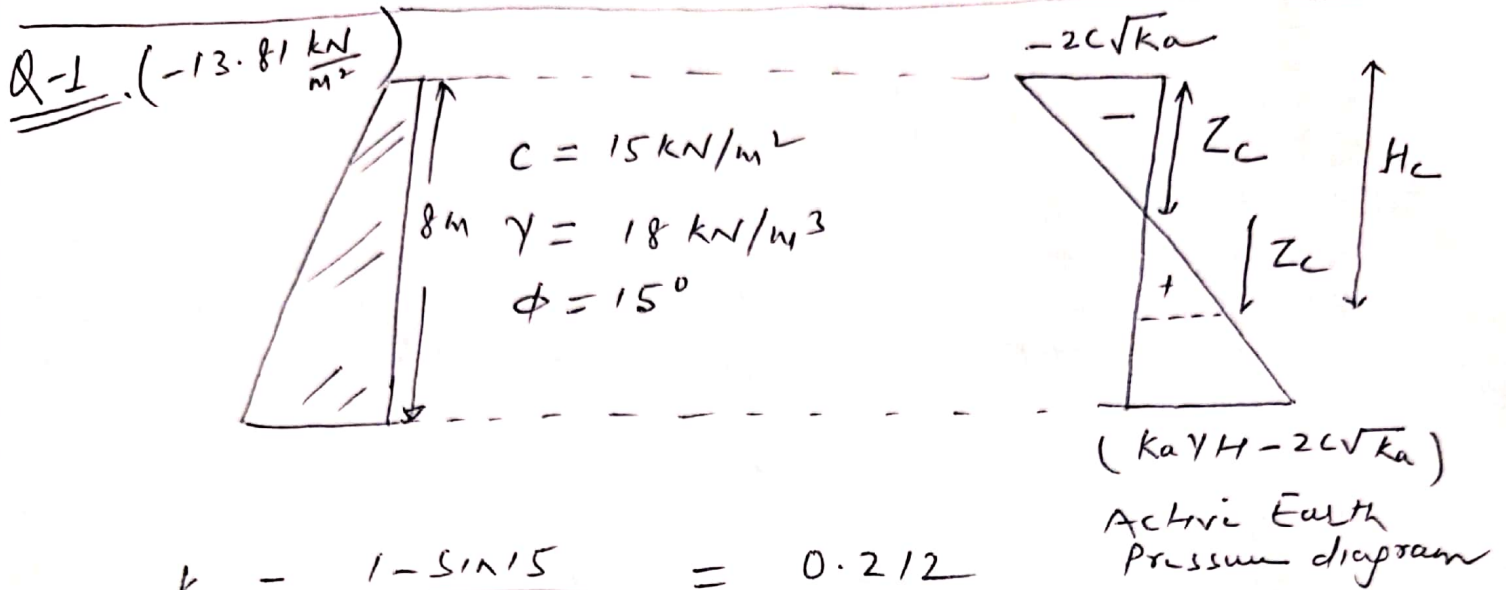 Q-1. (-13.81 kN/m²)
-2c√Ka
c = 15 kN/m²
8m
γ = 18 kN/m³
φ = 15°
-
Zc
Hc
+
Zc
(KaγH - 2c√Ka)
Active Earth
Pressure diagram
1-sin15 = 0.212